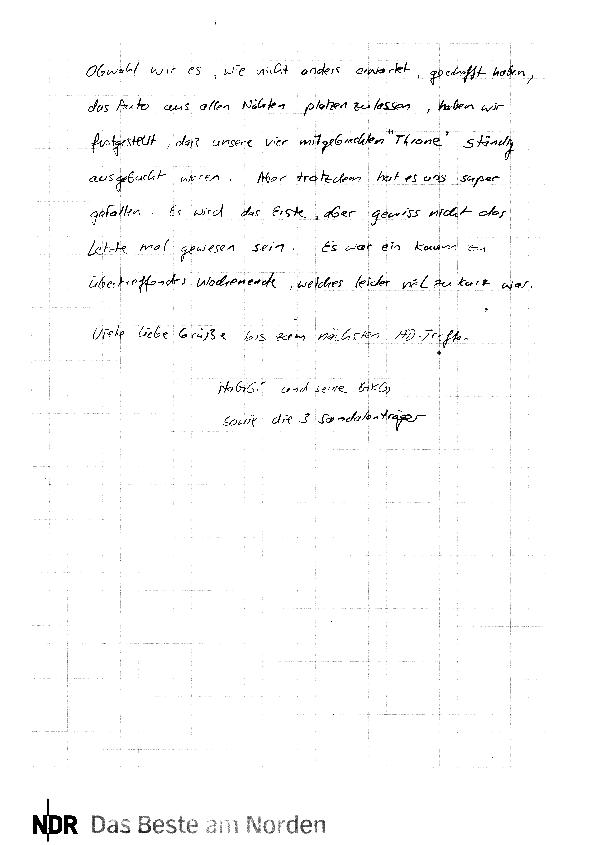 Obwohl wir es, wie nicht anders erwartet, geschafft haben,
das Auto aus allen Nähten platzen zu lassen, haben wir
festgestellt, daß unsere vier mitgebrachten "Throne" ständig
ausgebucht waren. Aber trotzdem hat es uns super
gefallen. Es wird das Erste, aber gewiss nicht das
letzte mal gewesen sein. Es war ein kaum zu
übertreffendes Wochenende, welches leider viel zu kurz war.
Viele liebe Grüße bis zum nächsten HD-Treffen
und seine
sowie die 3 Sandalenträger
NDR Das Beste am Norden